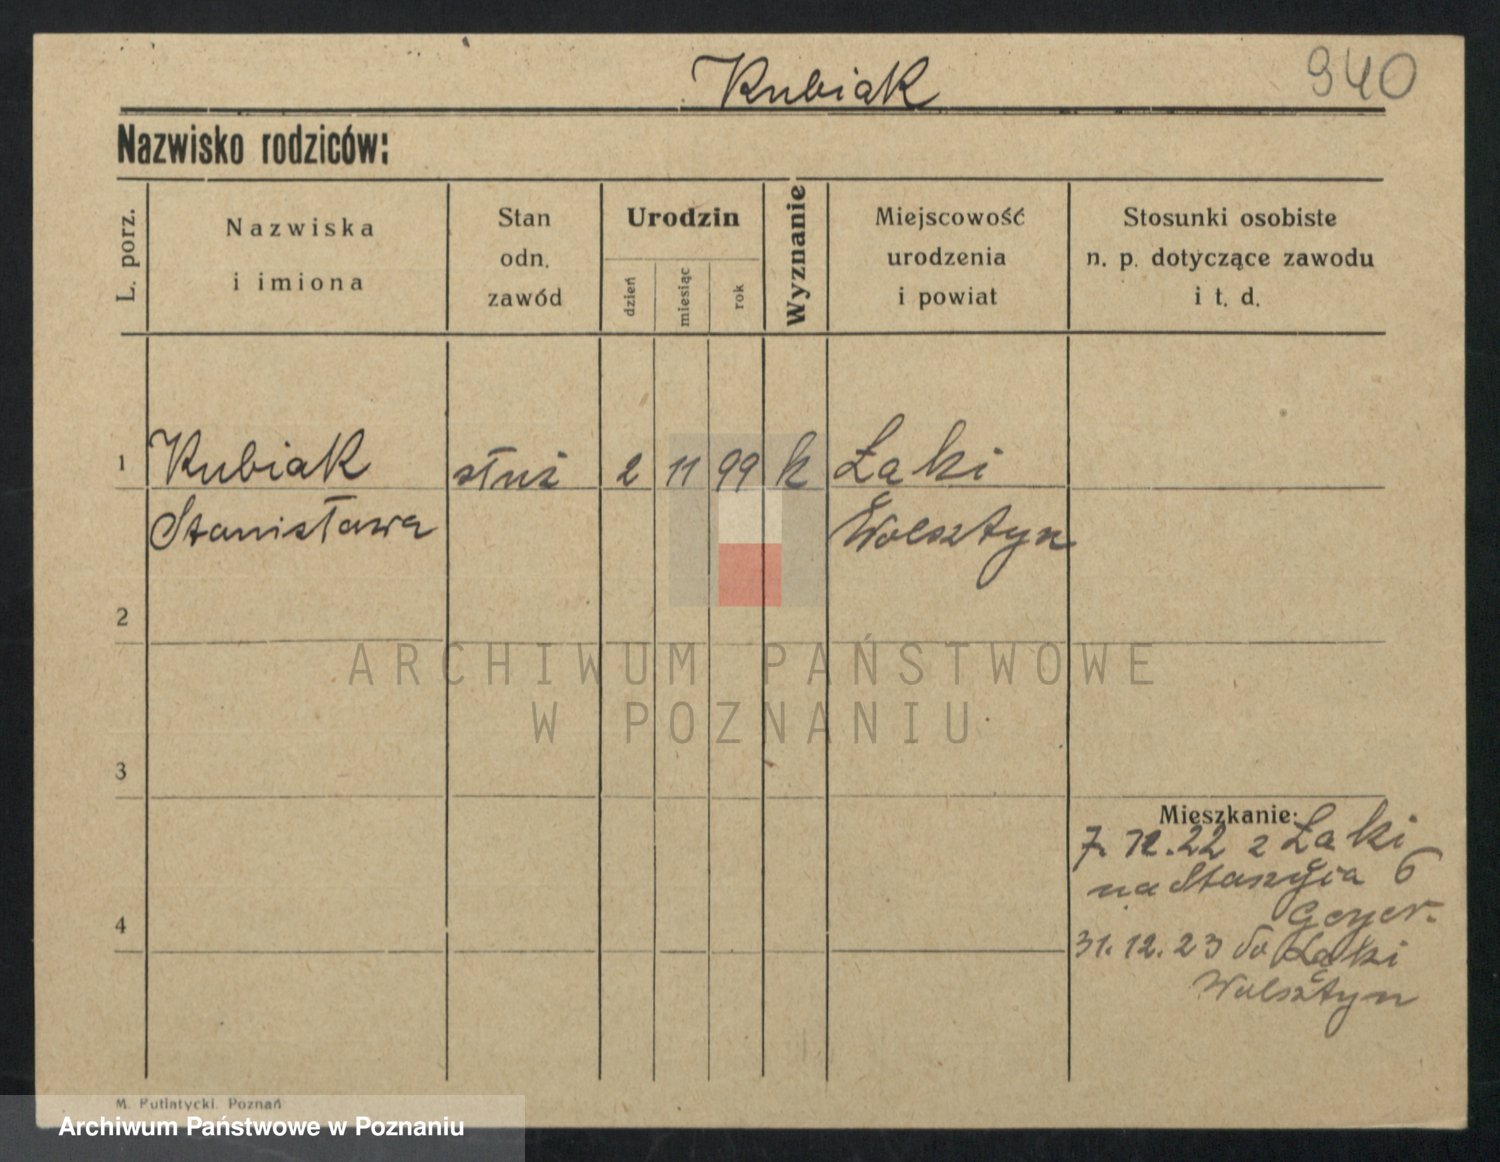 Kubiak
940
Nazwisko rodziców:
L. porz.
Nazwiska
i imiona
Stan
odn.
zawód
Urodzin
dzień
miesiąc
rok
Wyznanie
Miejscowość
urodzenia
i powiat
Stosunki osobiste
n. p. dotyczące zawodu
i t. d.
1 Kubiak służ 2 11 99 k Łąki
Stanisława Wolsztyn
2
ARCHIWUM PAŃSTWOWE
W POZNANIU
3
Mieszkanie:
7. 12. 22 z Łąki
na Staszyca 6
Geyer.
4
31. 12. 23 do Łąki
Wolsztyn
M. Putiatycki. Poznań
Archiwum Państwowe w Poznaniu